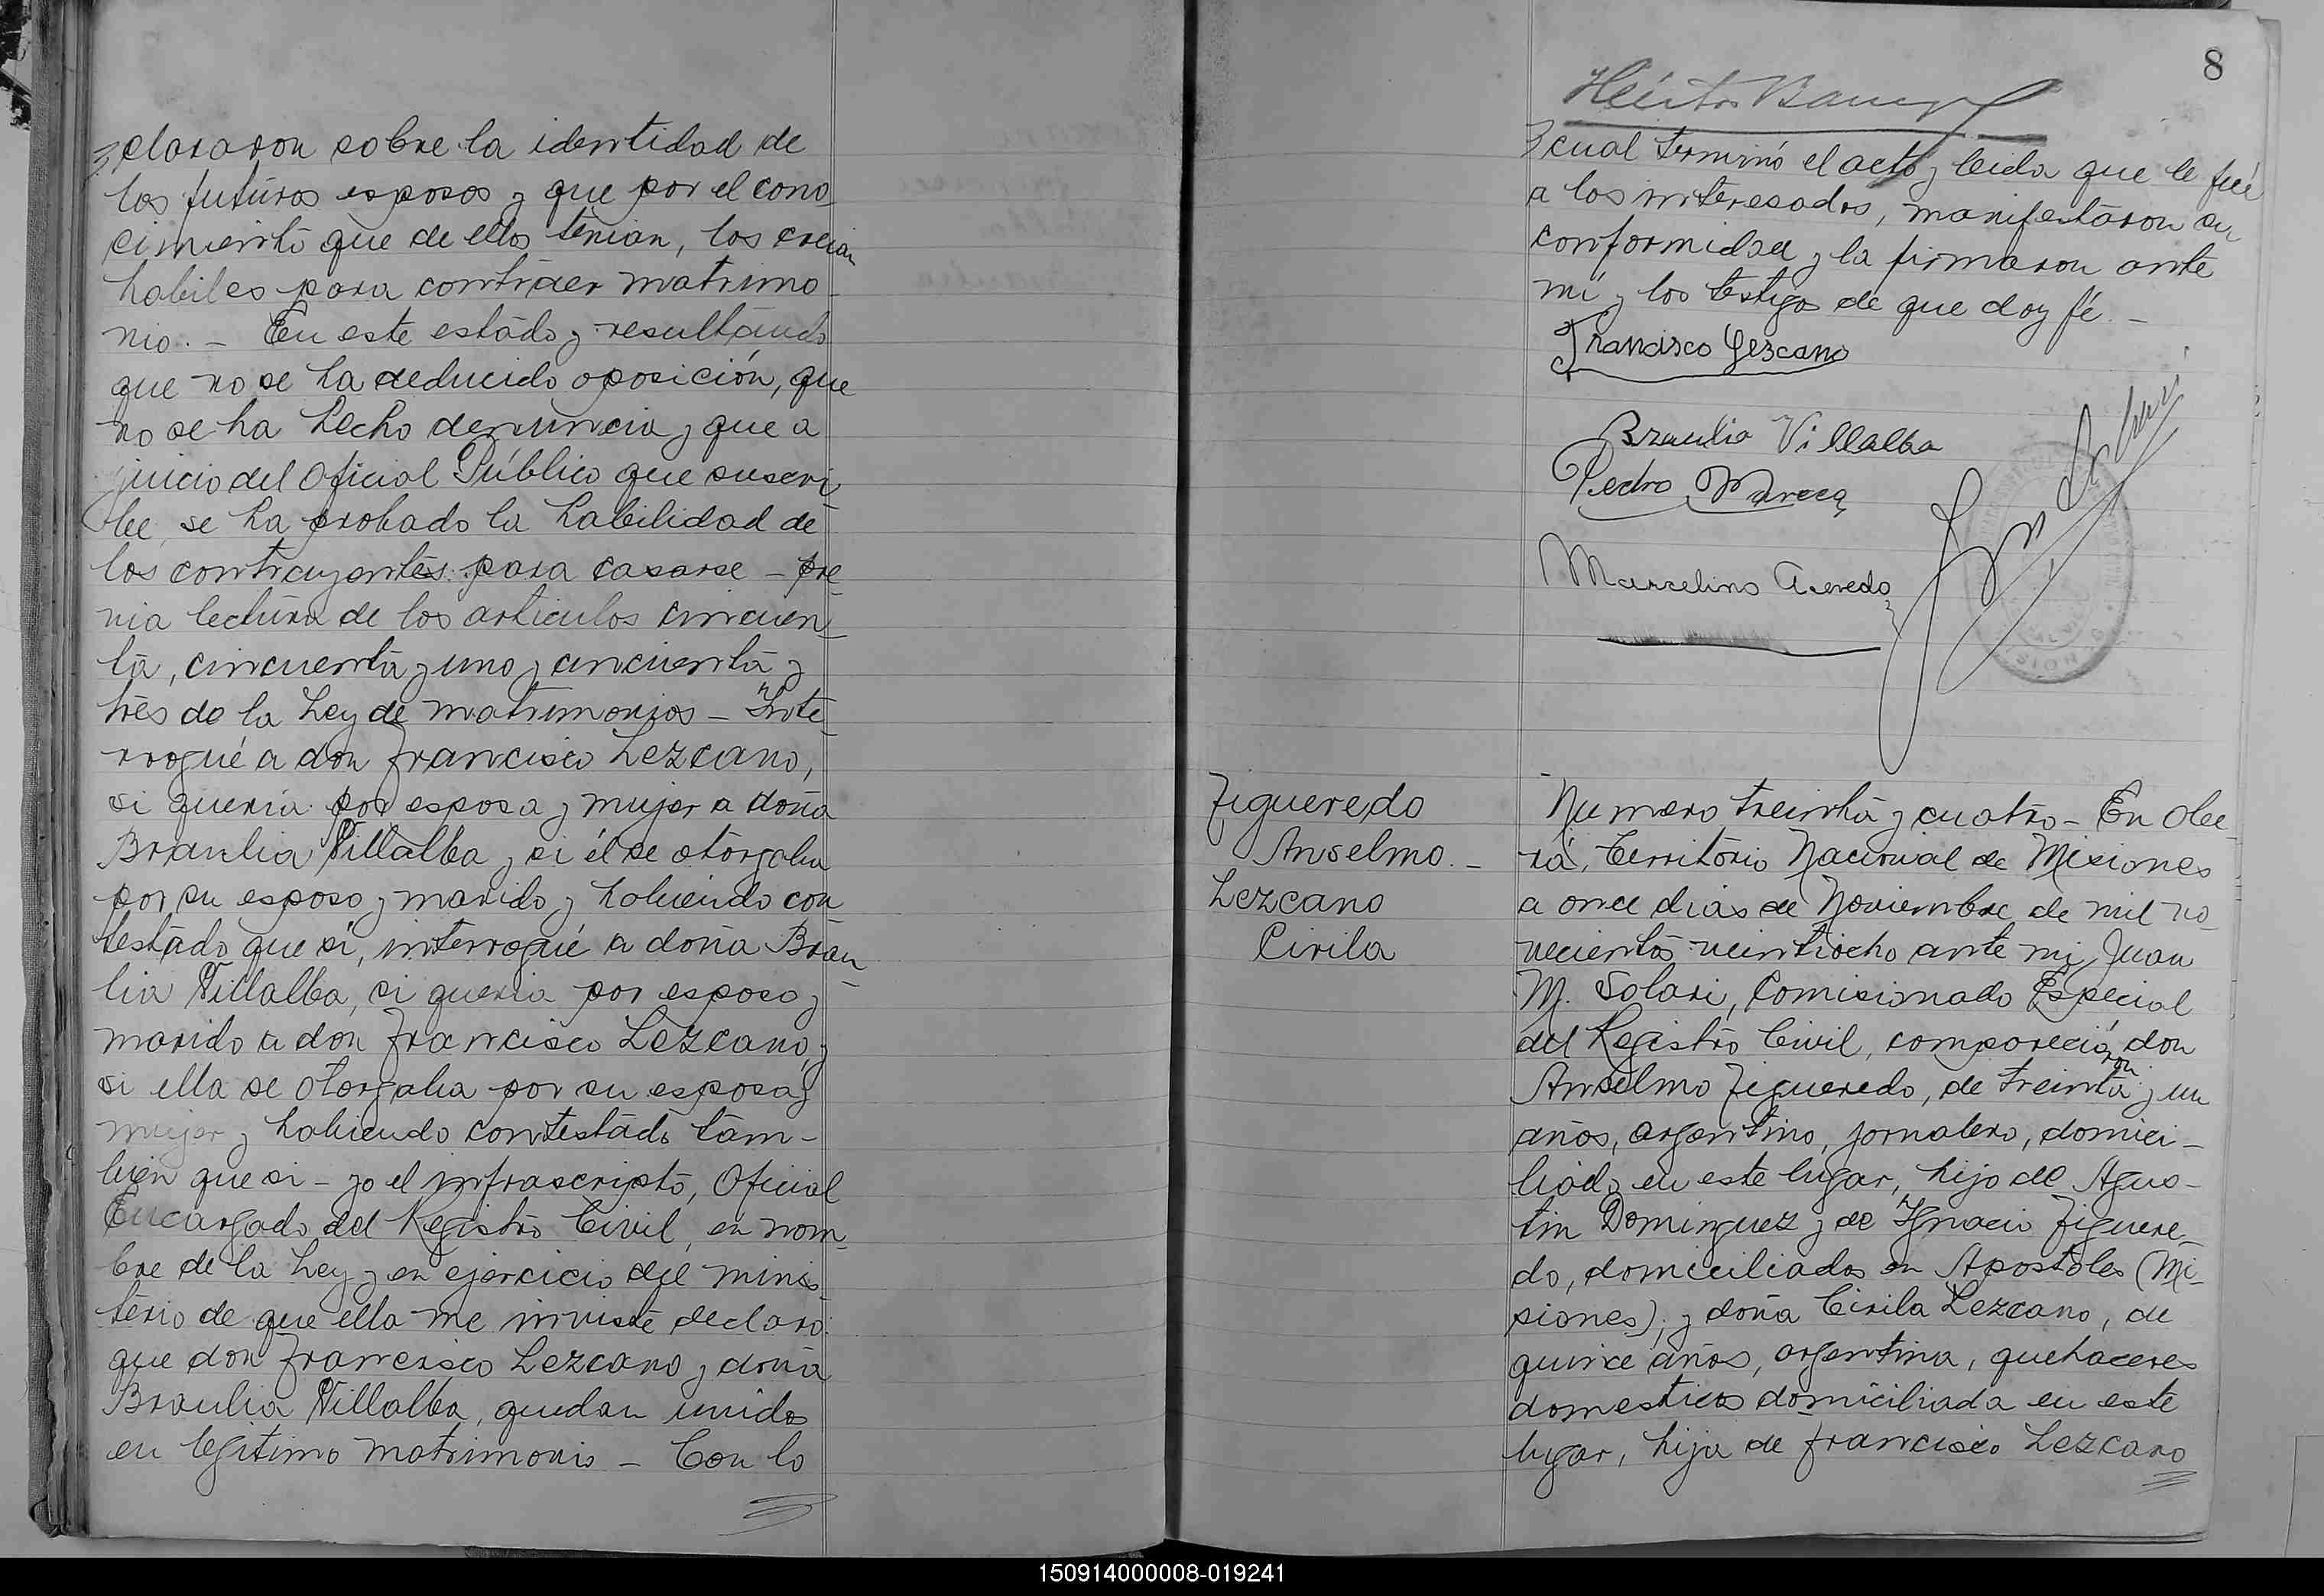 clararon sobre la identidad de
los futuros esposos y que por el cono
cimiento que de ellos tenian, los creian
habiles para contraer matrimo-
nio. - En este estado y resultando
que no se ha deducido oposición, que
no se ha hecho denuncia y que a
juicio del Oficial Público que suscri-
be, se ha probado la habilidad de
los contrayentes para casarse - pre-
via lectura de los articulos cincuen-
ta, cincuenta y uno y cincuenta y
tres de la Ley de matrimonios - Inte-
rrogué a don Francisco Lezcano,
si queria por esposa y mujer a doña
Braulia Villalba y si él se otorgaba
por su esposo y marido y habiendo con-
testado que si, interrogué a doña Brau-
lia Villalba, si queria por esposo y
marido a don Francisco Lezcano y
si ella se otorgaba por su esposa y
mujer y habiendo contestado tam-
bien que si - yo el infrascripto, Oficial
Encargado del Registro Civil, en nom-
bre de la Ley y en ejercicio del minis-
terio de que ella me inviste declaro:
que don Francisco Lezcano y doña
Braulia Villalba, quedan unidos
en legitimo matrimonio - Con lo
8
Héctor
cual terminó el acto y leida que le fué
a los interesados, manifestaron su
conformidad y la firmaron ante
mí y los testigos de que doy fé. -
Francisco Lezcano
Braulia Villalba
Pedro
Marcelino Acevedo
Figueredo
Anselmo. -
Lezcano
Cirila
Numero treinta y cuatro - En Obe-
rá, Territorio Nacional de Misiones
a once dias de Noviembre de mil no-
vecientos veintiocho ante mi, Juan
M. Solari, Comisionado Especial
del Registro Civil, comparecieron don
Anselmo Figueredo, de treinta y un
años, argentino, jornalero, domici-
liado en este lugar, hijo de Agus-
tin Dominguez y de Ignacia Figuere-
do, domiciliados en Apostoles (Mi-
siones); y doña Cirila Lezcano, de
quince años, argentina, quehaceres
domesticos domiciliada en este
lugar, hija de Francisco Lezcano
150914000008-019241